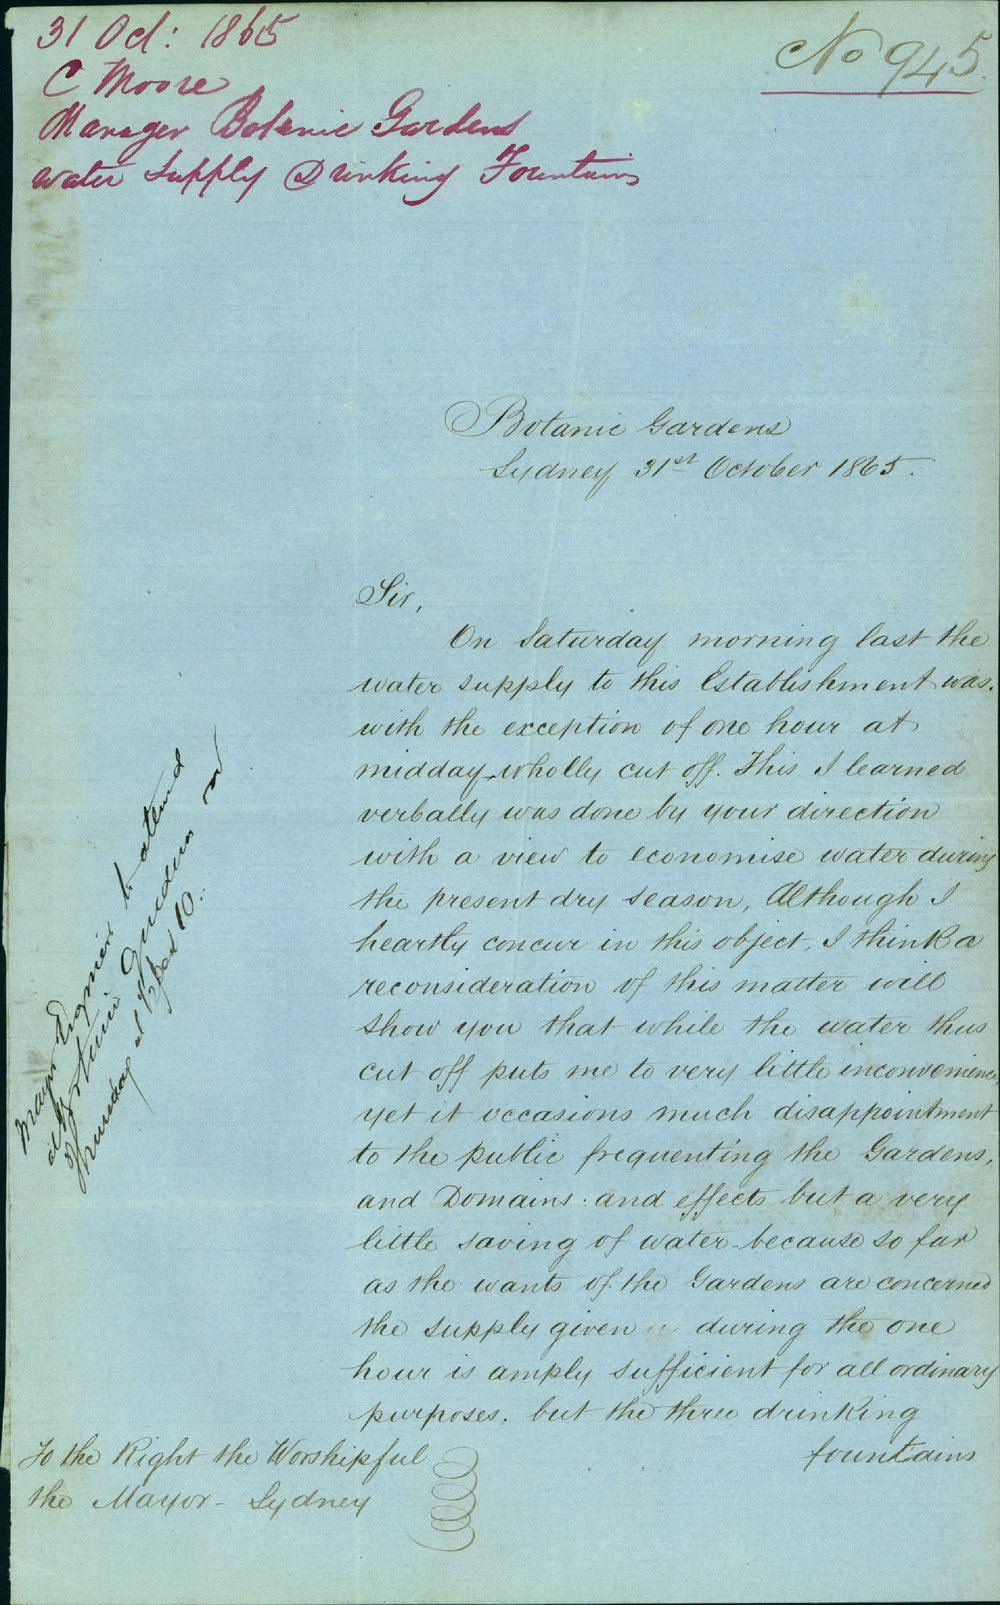 31 Oct: 1865
C Moore
Manager Botanic Gardens
water Supply Drinking Fountains
No 945.
Botanic Gardens
Sydney 31st October 1865.
Sir,
On Saturday morning last the
water supply to this Establishment was.
with the exception of one hour at
midday wholly cut off. This I learned
verbally was done by your direction
with a view to economise water during
the present dry season, Although I
heartly concur in this object. I think a
reconsideration of this matter will
show you that while the water thus
cut off puts me to very little inconvenience
yet it occasions much disappointment
to the public frequenting the Gardens,
and Domains. and effects but a very
little saving of water because so far
as the wants of the Gardens are concerned
the supply given during the one
hour is amply sufficient for all ordinary
purposes, but the three drinking
fountains
To the Right the Worshipful
the Mayor - Sydney
Engineer to attend
at Gardens on
at 10.